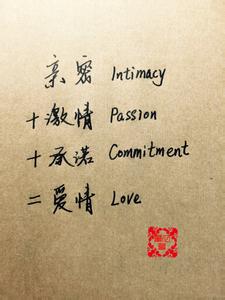 亲密 Intimacy
+激情 Passion
+承诺 Commitment
=爱情 Love